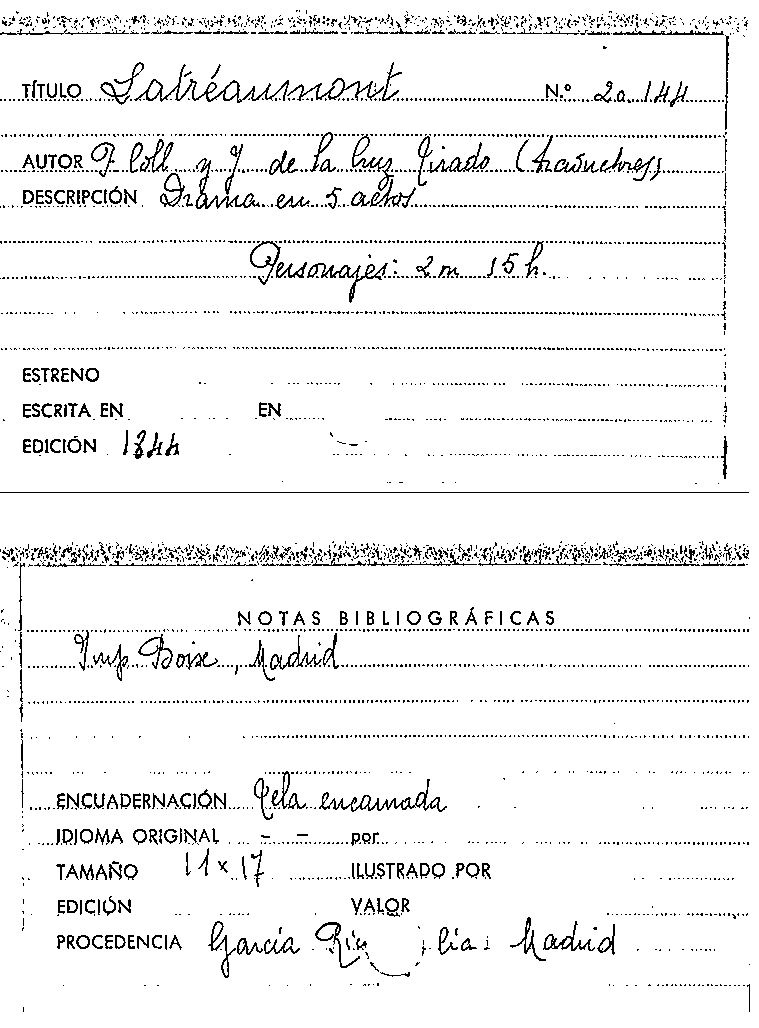 TÍTULO Latréaumont N.º 20.144
AUTOR F. Coll y J. de la Cruz Tirado (traductores)
DESCRIPCIÓN Drama en 5 actos
Personajes: 2 m 15 h.
ESTRENO
ESCRITA EN EN
EDICIÓN 1844
NOTAS BIBLIOGRÁFICAS
Imp. Boix, Madrid
ENCUADERNACIÓN Tela encarnada
IDIOMA ORIGINAL - - por
TAMAÑO 11 x 17 ILUSTRADO POR
EDICIÓN VALOR
PROCEDENCIA García Cía: Madrid